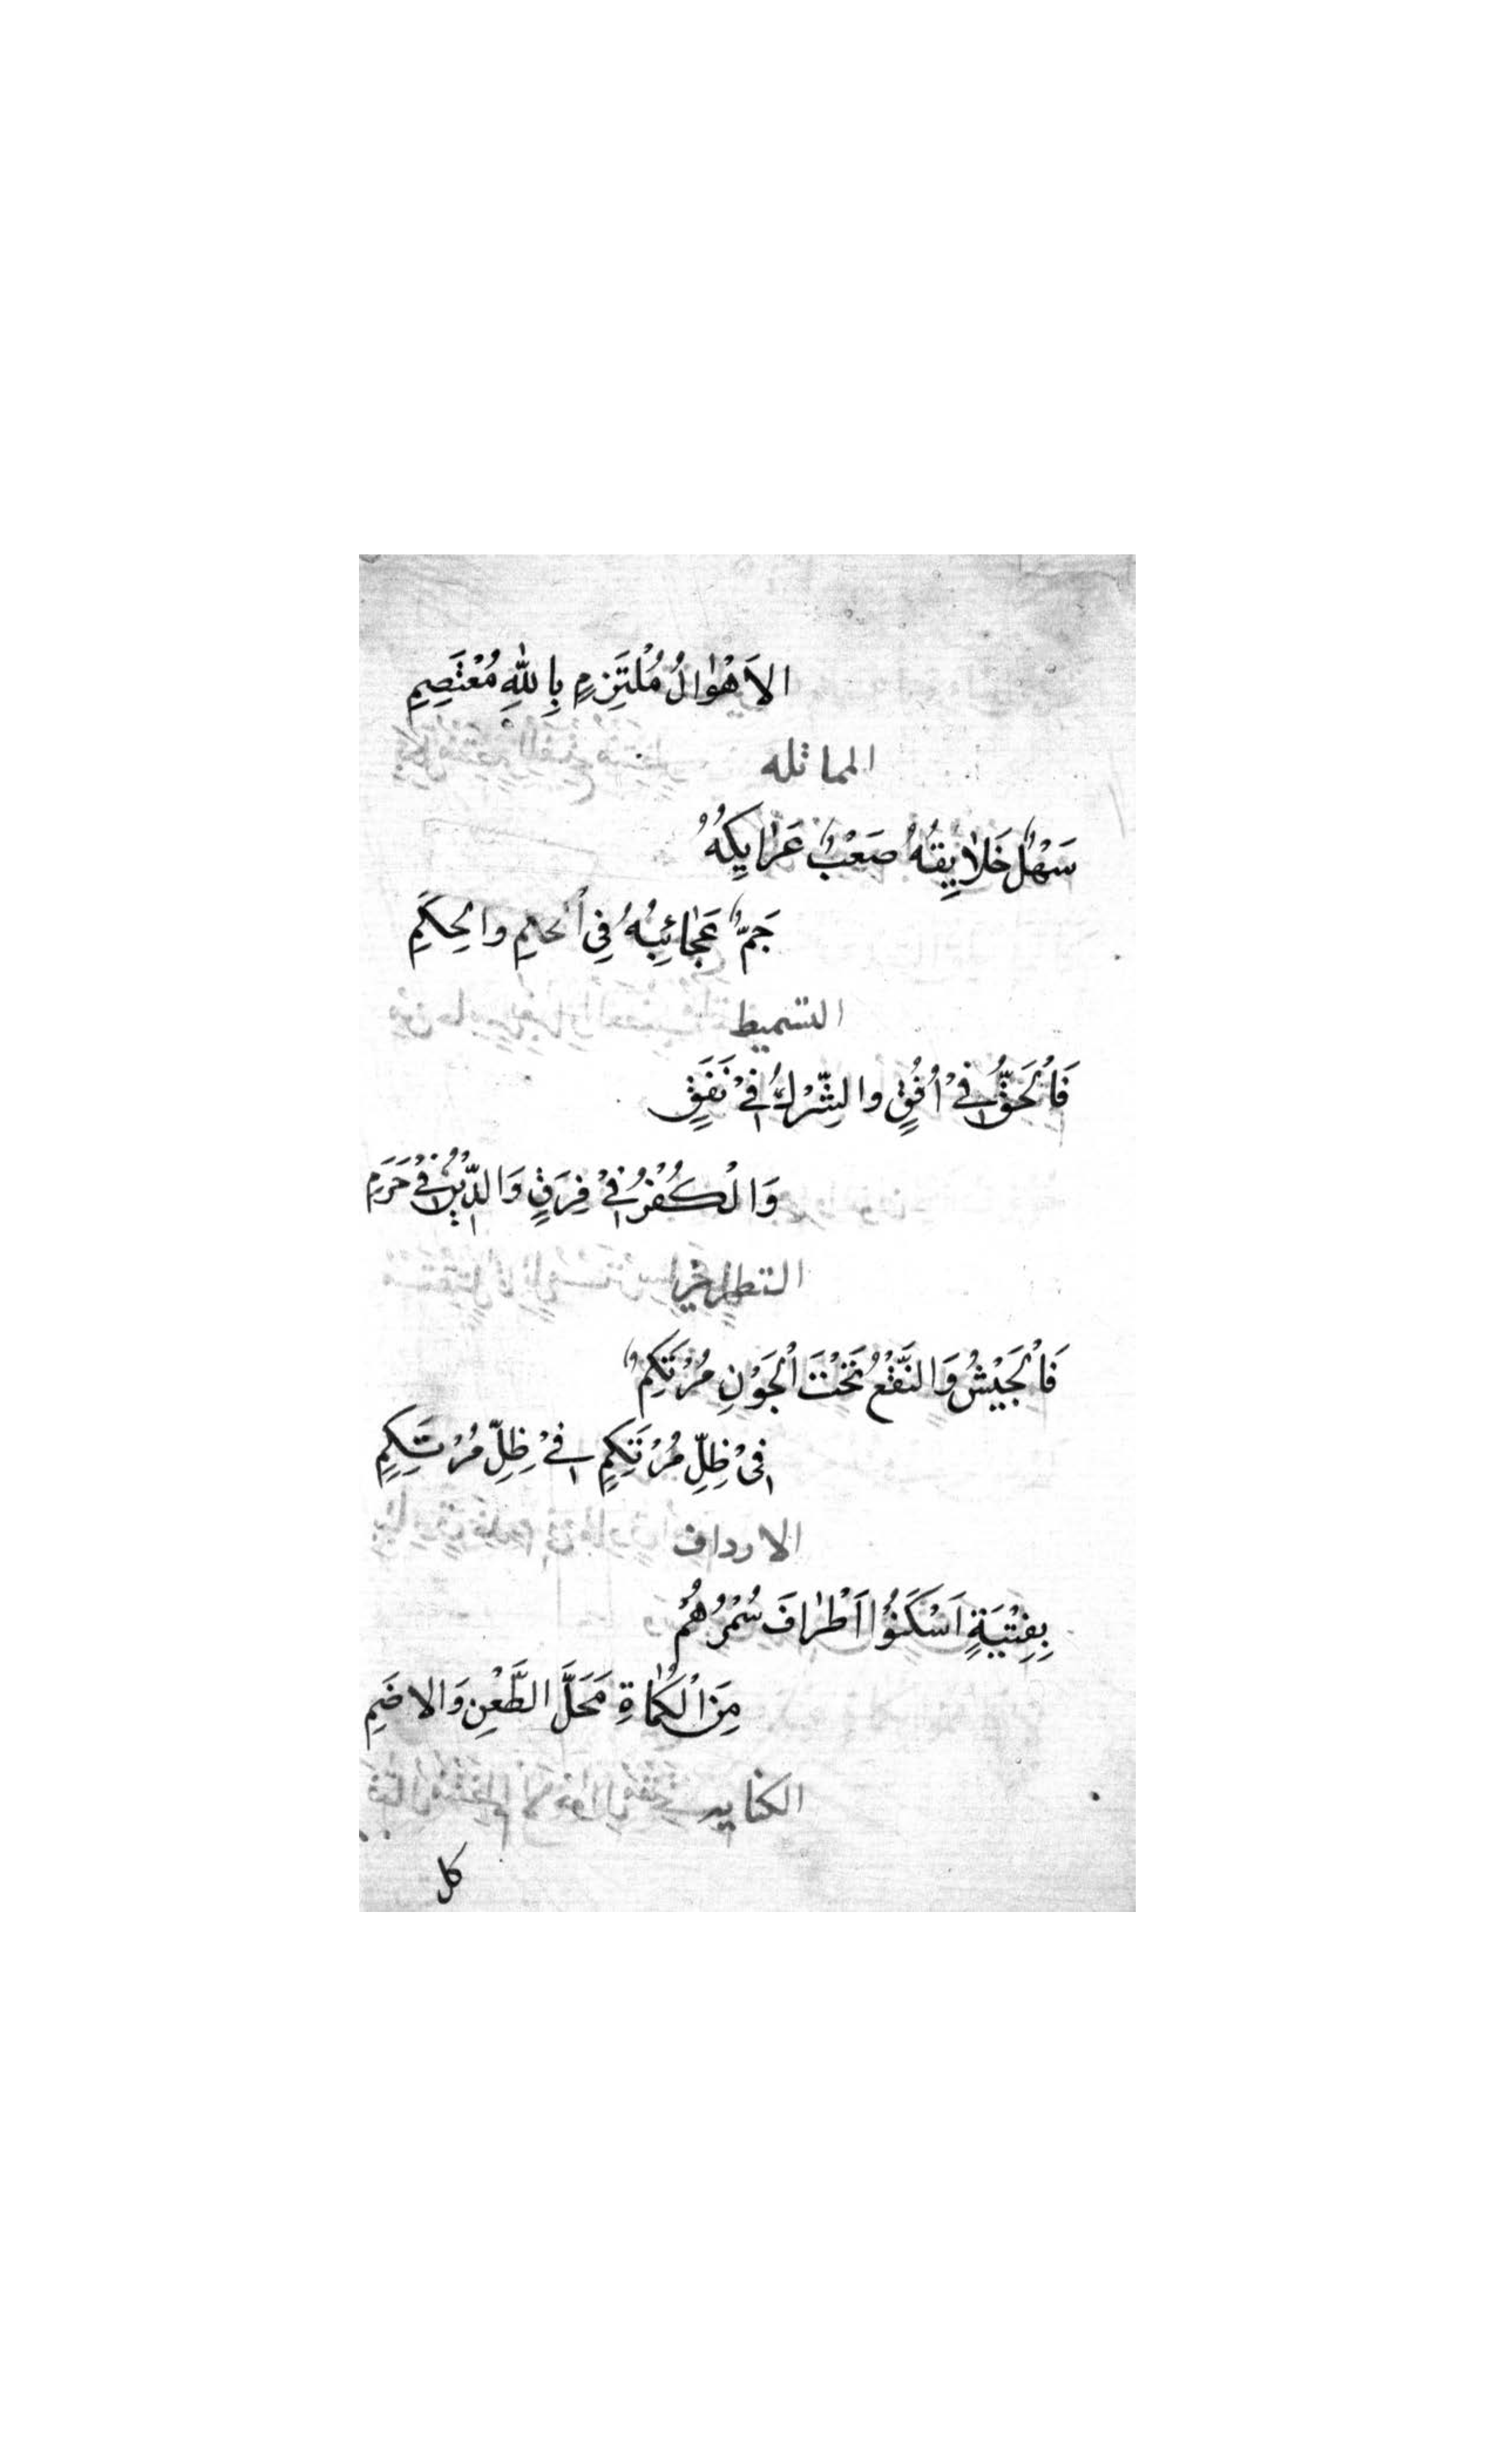 الاَهْوٰالُ مُلْتَزِمٍ بِاللّٰهِ مُعْتَصِمِ
المماثله
سَهْلٌ خَلاٰيِقُهُ صَعْبٌ عَرٰايِكُهُ
جَمٌّ عَجٰائِبُهُ فِي اْلحُكمِ والحِكَمِ
التسميط
فَاْلحَقُّ فِيْ اُفُقٍ والشِّرْكُ فِيْ نَفَقٍ
وَالْكُفْرُ فِيْ فِرَقٍ وَالدِّيْنُ فِيْ حَرَمِ
التطريز
فَاْلجَيْشُ وَالنَّقْعُ تَحْتَ اْلجَوْنِ مُرْتَكِمٌ
فِيْ ظِلِّ مُرْتَكِمٍ فِيْ ظِلِّ مُرْتَكِمِ
الارداف
بِفِتْيَةٍ اَسْكَنُوْا اَطْرٰافَ سُمْرُهُمْ
مِنَ اْلكُمٰاةِ مَحَلَّ الطَّعْنِ وَالاضَمِ
الكنايه
كل